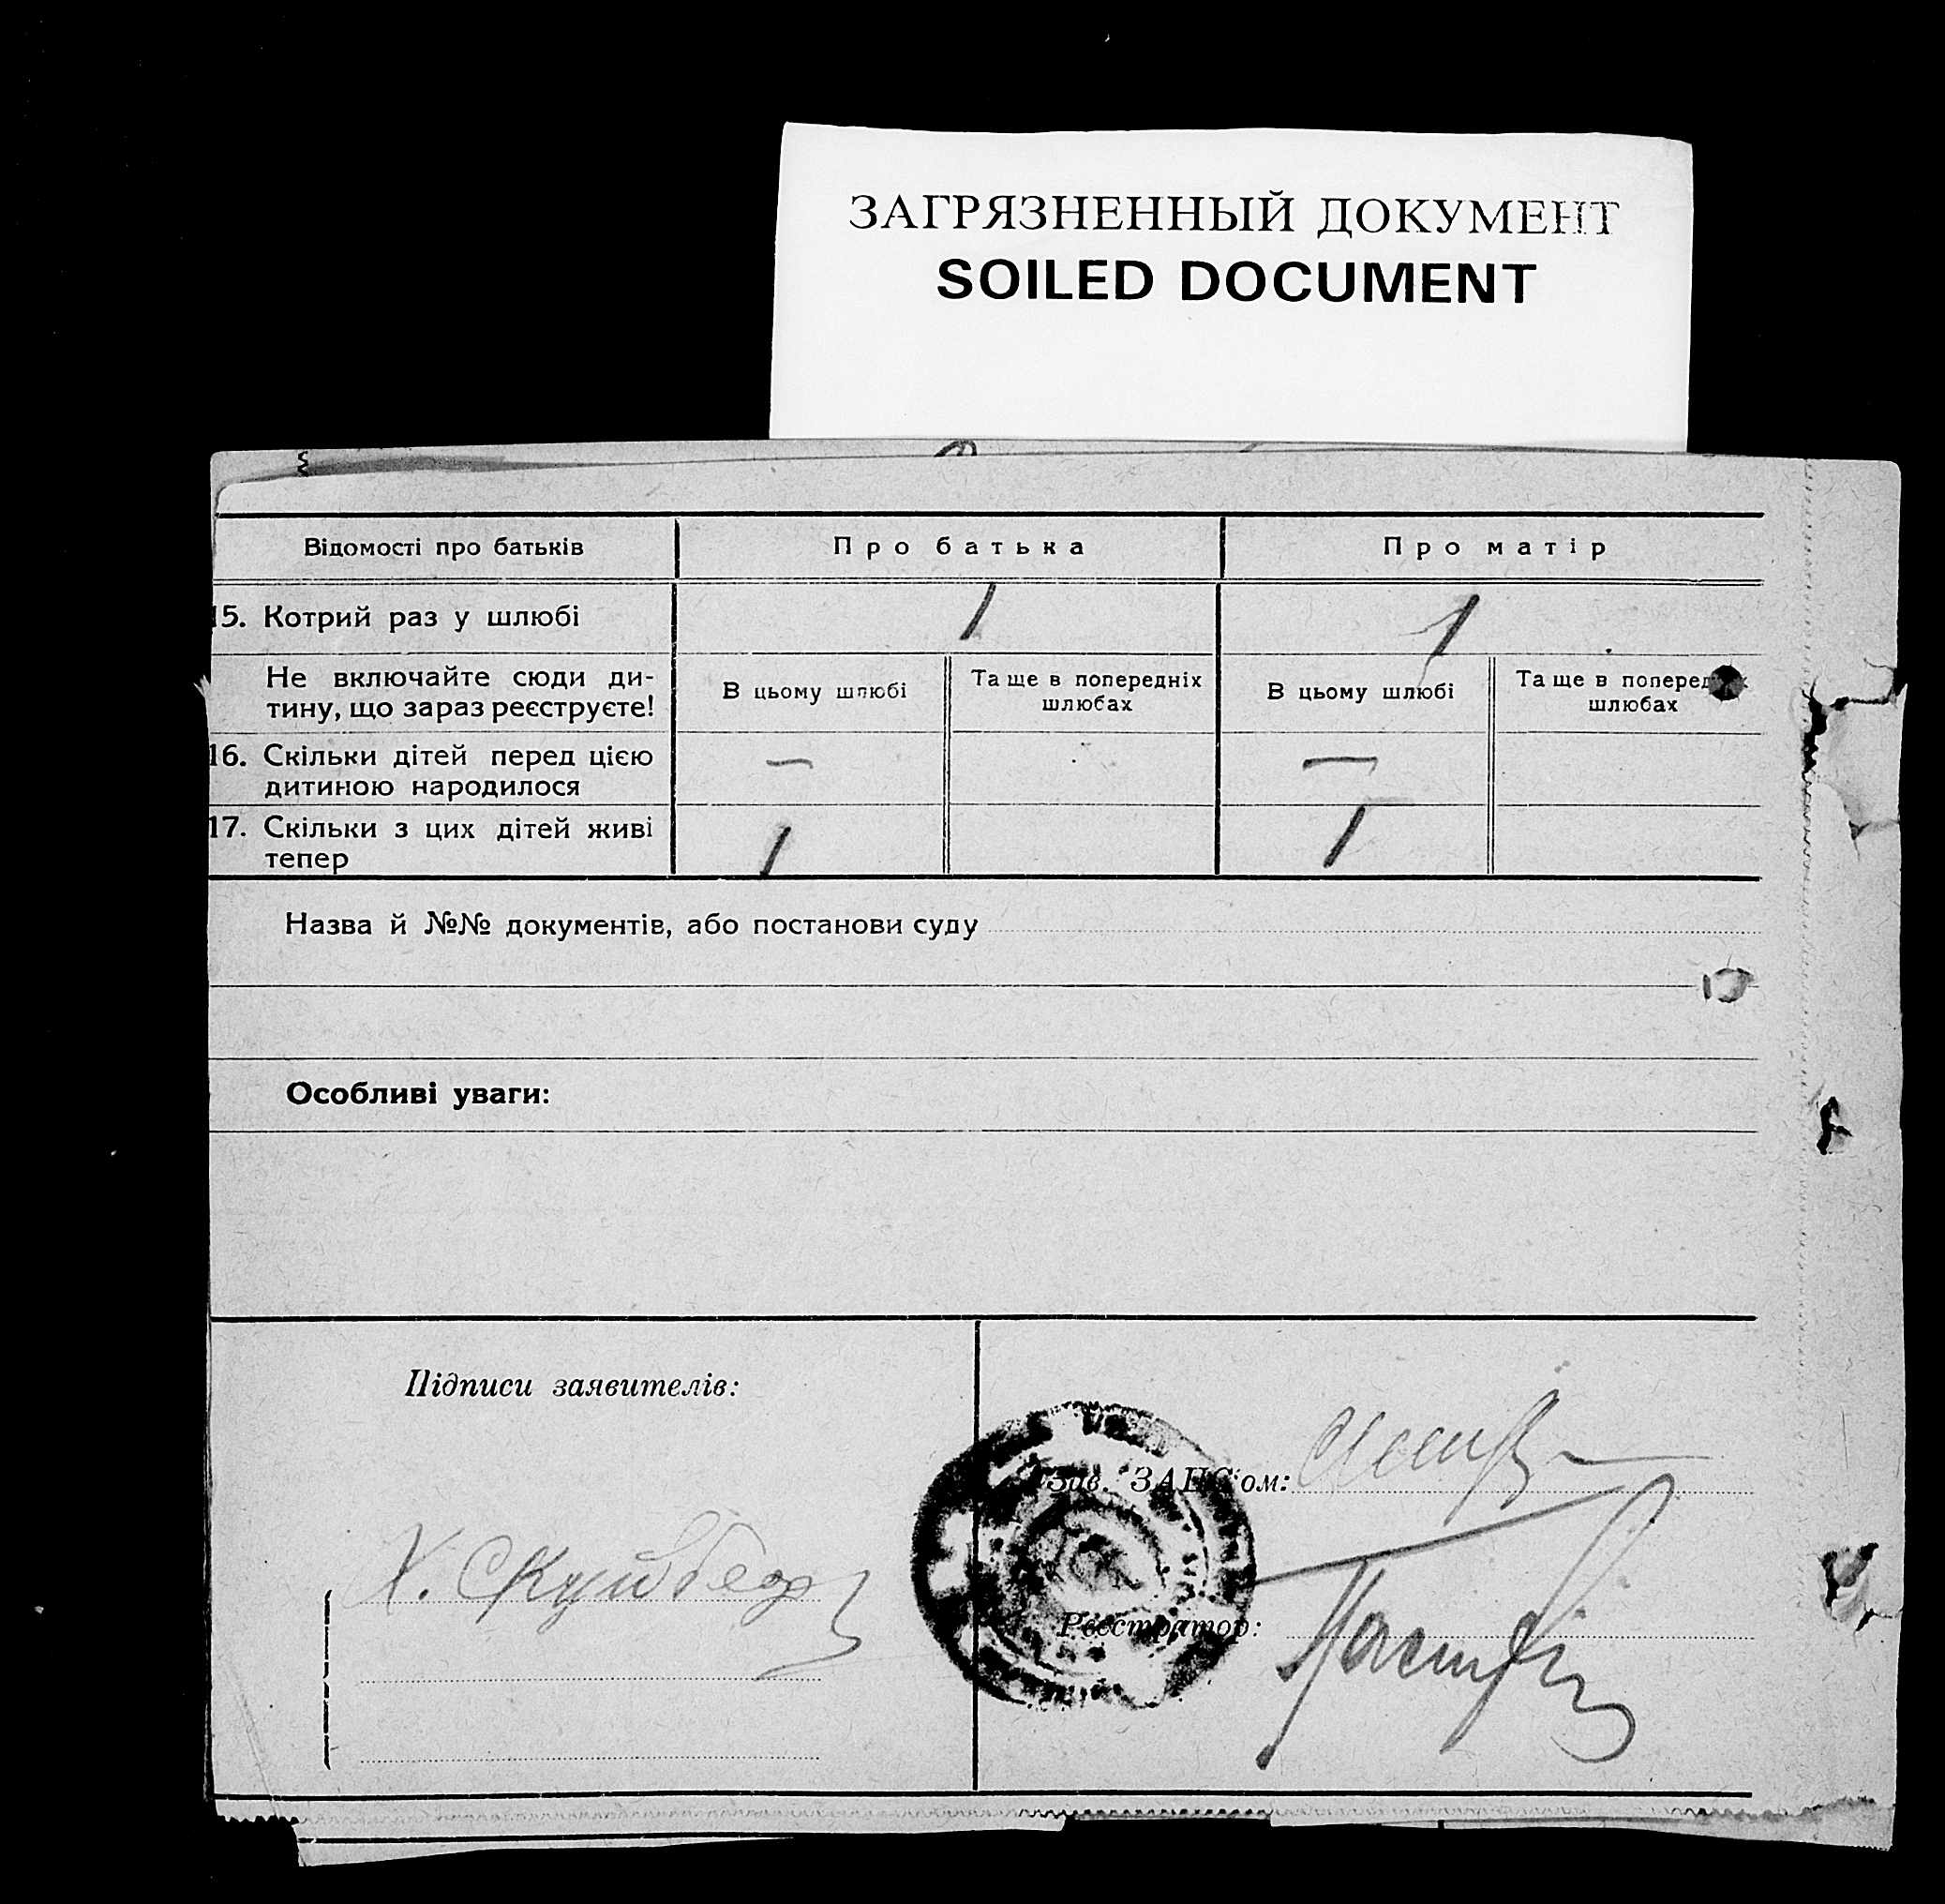 ЗАГРЯЗНЕННЫЙ ДОКУМЕНТ
SOILED DOCUMENT
Відомості про батьків
Про батька
Про матір
15. Котрий раз у шлюбі
1
1
Не включайте сюди ди-
тину, що зараз реєструєте!
В цьому шлюбі
Та ще в попередніх
шлюбах
В цьому шлюбі
Та ще в поперед
шлюбах
16. Скільки дітей перед цією
дитиною народилося
—
—
17. Скільки з цих дітей живі
тепер
1
1
Назва й №№ документів, або постанови суду
Особливі уваги:
Підписи заявителів:
Зав. ЗАГС'ом:
Х.
Реєстратор: